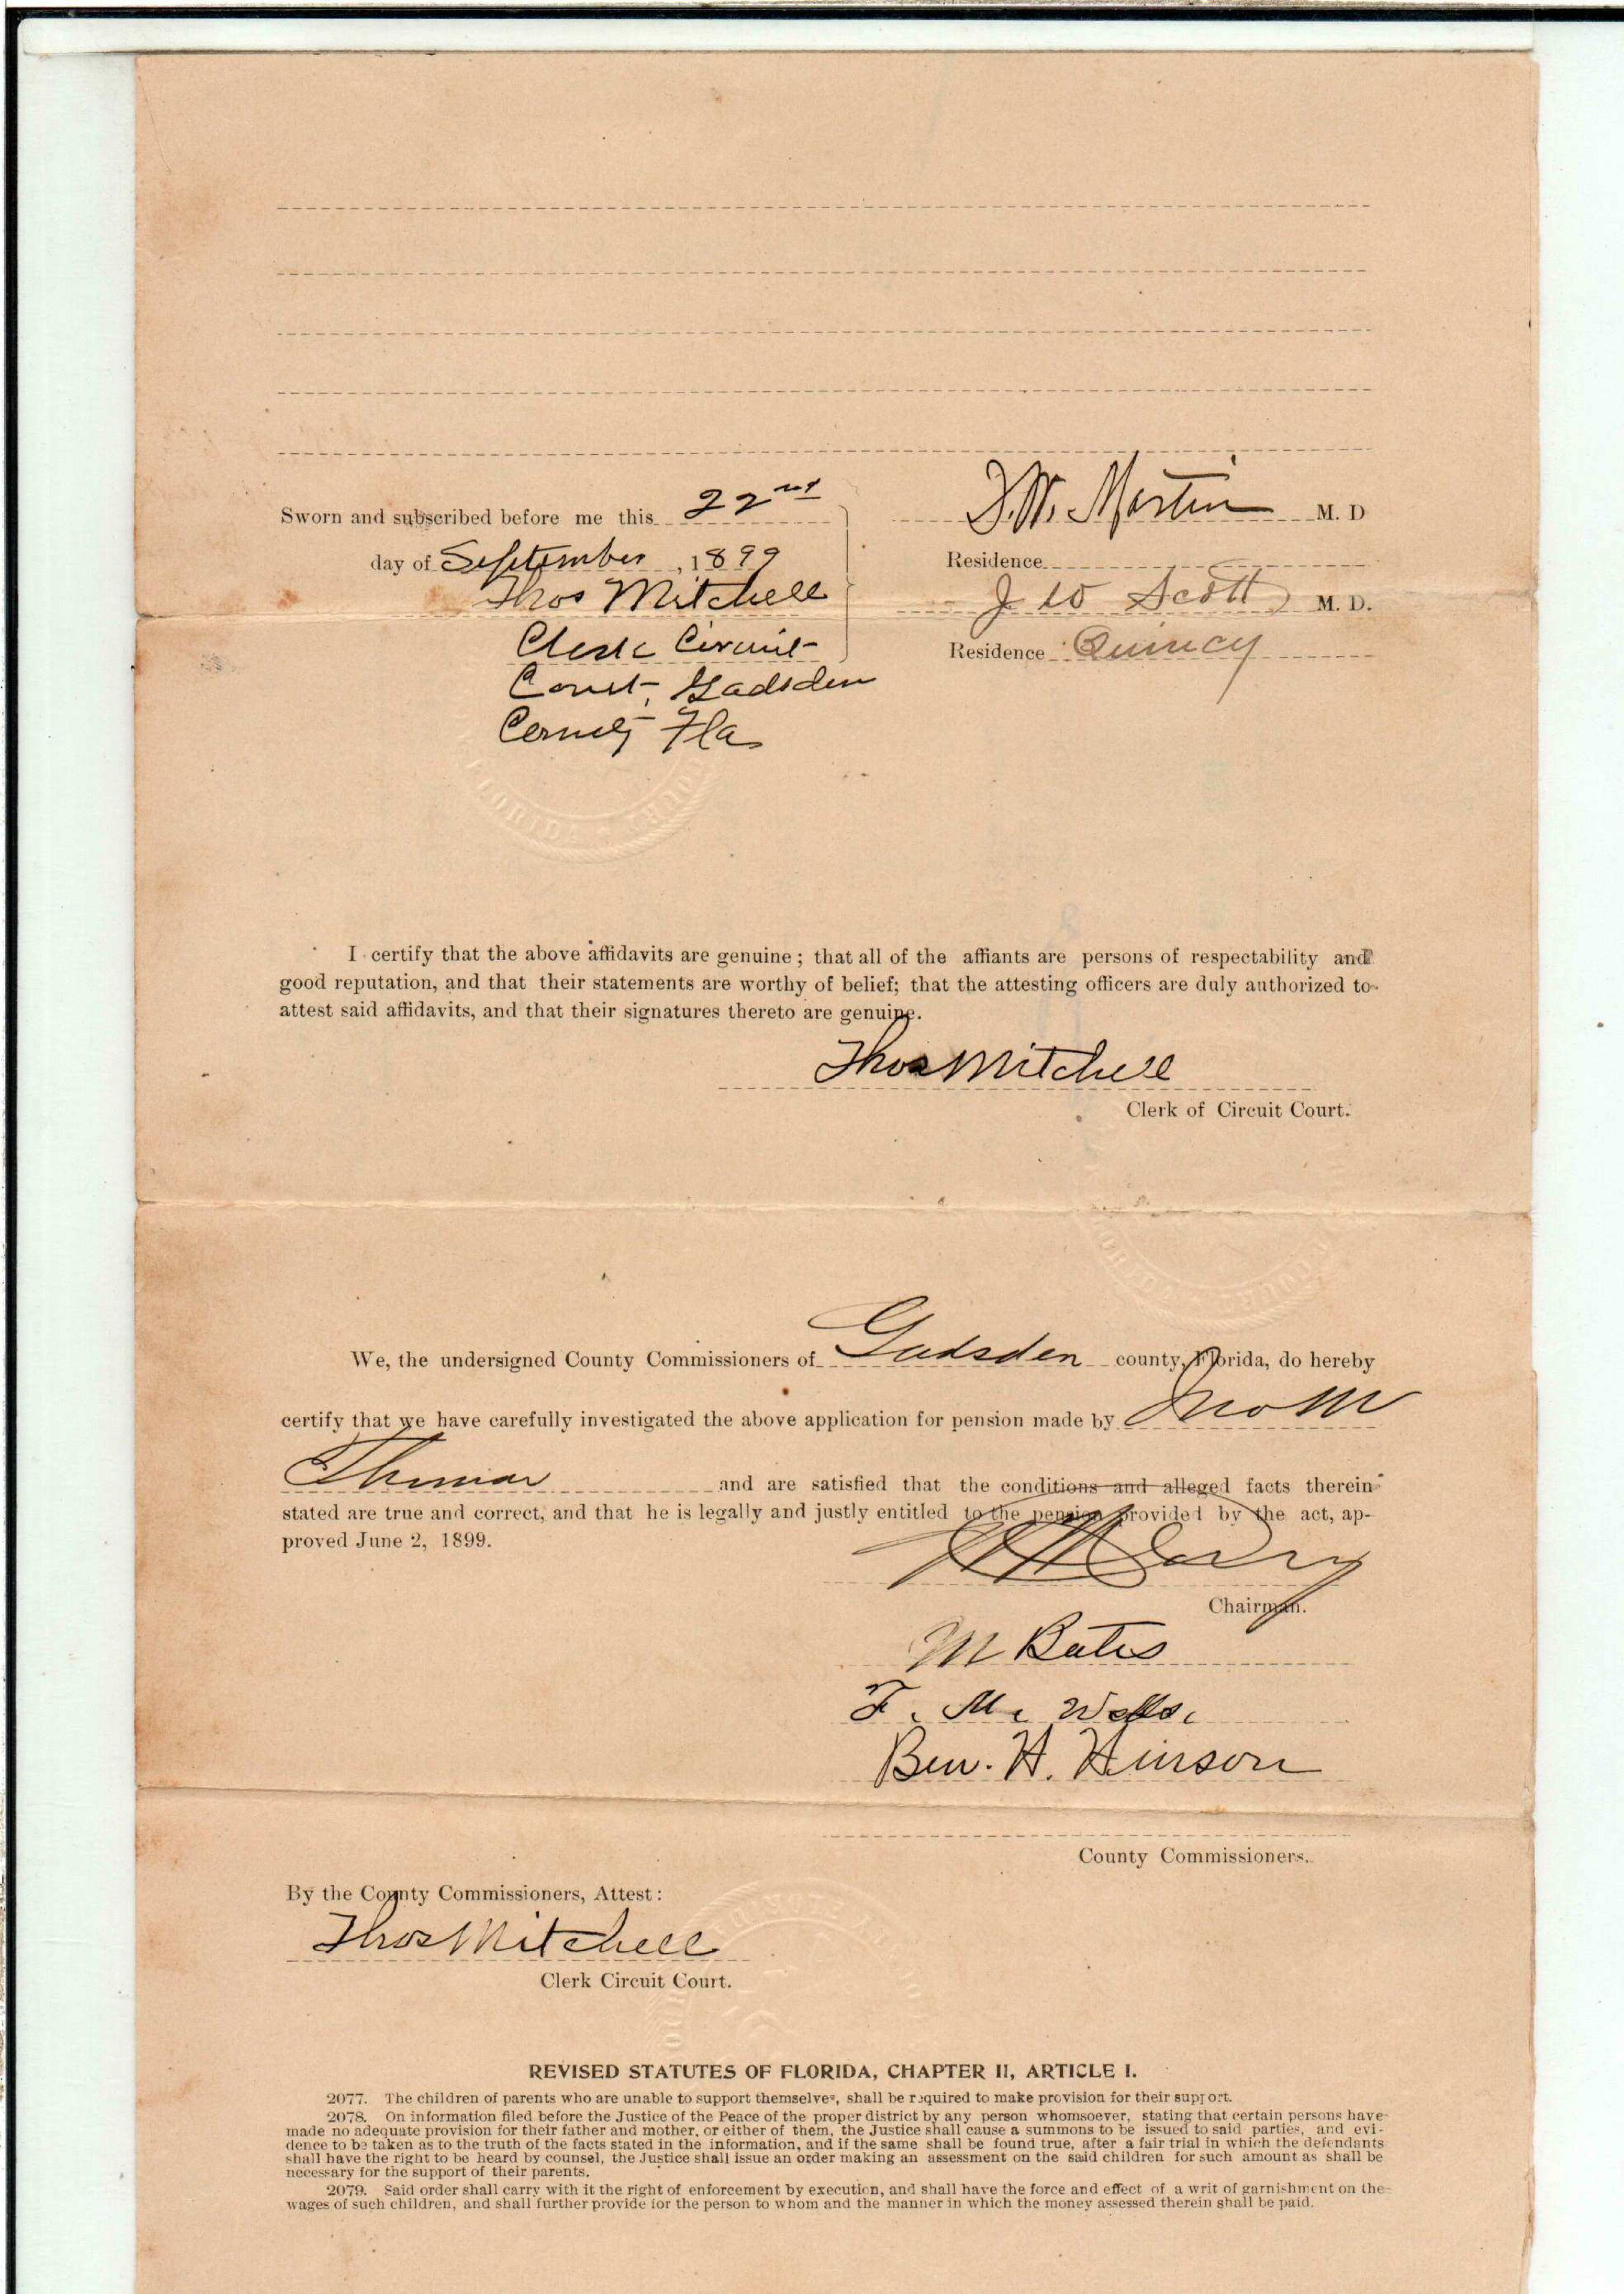 Sworn and subscribed before me this 22nd
day of September, 1899
Thos Mitchell
Clerk Circuit
Court, Gadsden
County Fla
Martin M. D
Residence
J W Scott M. D.
Residence Quincy
I certify that the above affidavits are genuine; that all of the affiants are persons of respectability and
good reputation, and that their statements are worthy of belief; that the attesting officers are duly authorized to
attest said affidavits, and that their signatures thereto are genuine.
Thos Mitchell
Clerk of Circuit Court.
We, the undersigned County Commissioners of Gadsden county, Florida, do hereby
certify that we have carefully investigated the above application for pension made by Jno M
and are satisfied that the conditions and alleged facts therein
stated are true and correct, and that he is legally and justly entitled to the pension provided by the act, ap-
proved June 2, 1899.
Chairman.
M Bates
F. M. Wells.
Ben. H. Hinson
County Commissioners.
By the County Commissioners, Attest:
Thos Mitchell
Clerk Circuit Court.
REVISED STATUTES OF FLORIDA, CHAPTER II, ARTICLE I.
2077. The children of parents who are unable to support themselves, shall be required to make provision for their support.
2078. On information filed before the Justice of the Peace of the proper district by any person whomsoever, stating that certain persons have
made no adequate provision for their father and mother, or either of them, the Justice shall cause a summons to be issued to said parties, and evi-
dence to be taken as to the truth of the facts stated in the information, and if the same shall be found true, after a fair trial in which the defendants
shall have the right to be heard by counsel, the Justice shall issue an order making an assessment on the said children for such amount as shall be
necessary for the support of their parents.
2079. Said order shall carry with it the right of enforcement by execution, and shall have the force and effect of a writ of garnishment on the
wages of such children, and shall further provide for the person to whom and the manner in which the money assessed therein shall be paid.